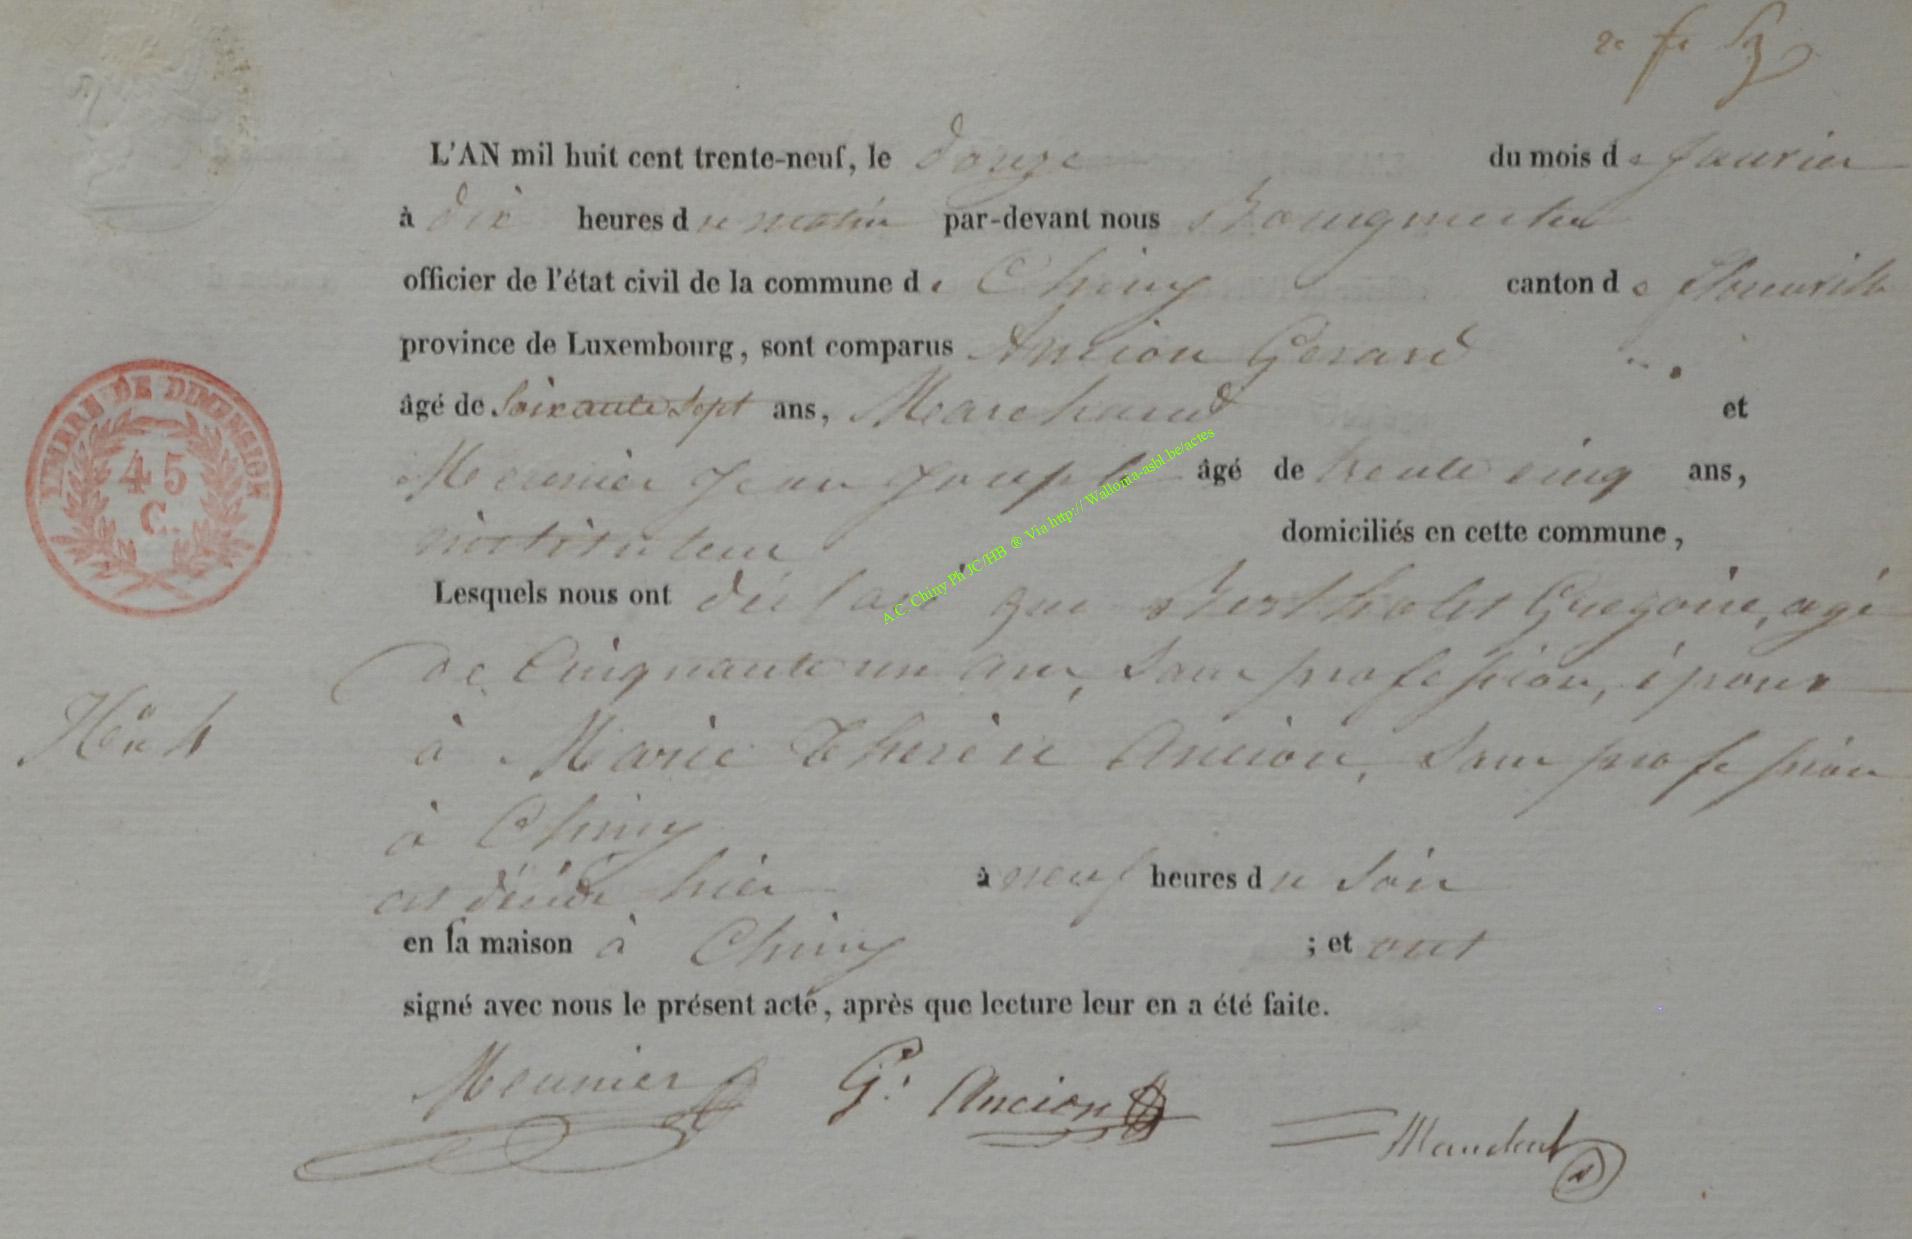 2e fe
L'AN mil huit cent trente-neuf, le douze du mois de Janvier
à dix heures du matin par-devant nous Bourgmestre
officier de l'état civil de la commune de Chiny canton de Florenville
province de Luxembourg, sont comparus Ancion Gerard
âgé de Soixante Sept ans, Marchand et
Meunier Jean Joseph âgé de trente cinq ans,
instituteur domiciliés en cette commune,
Lesquels nous ont déclaré que Bertholet Gregoire, agé
de Cinquante un ans, Sans profession, époux
à Marie Therèse Ancion, Sans profession
à Chiny
est décédé hier à neuf heures du Soir
en sa maison à Chiny ; et ont
signé avec nous le présent acte, après que lecture leur en a été faite.
Meunier G. Ancion
TIMBRE DE DIMENSION
45
C.
A.C. Chiny Ph JC/HB ® Via http://Wallonia-asbl.be/actes